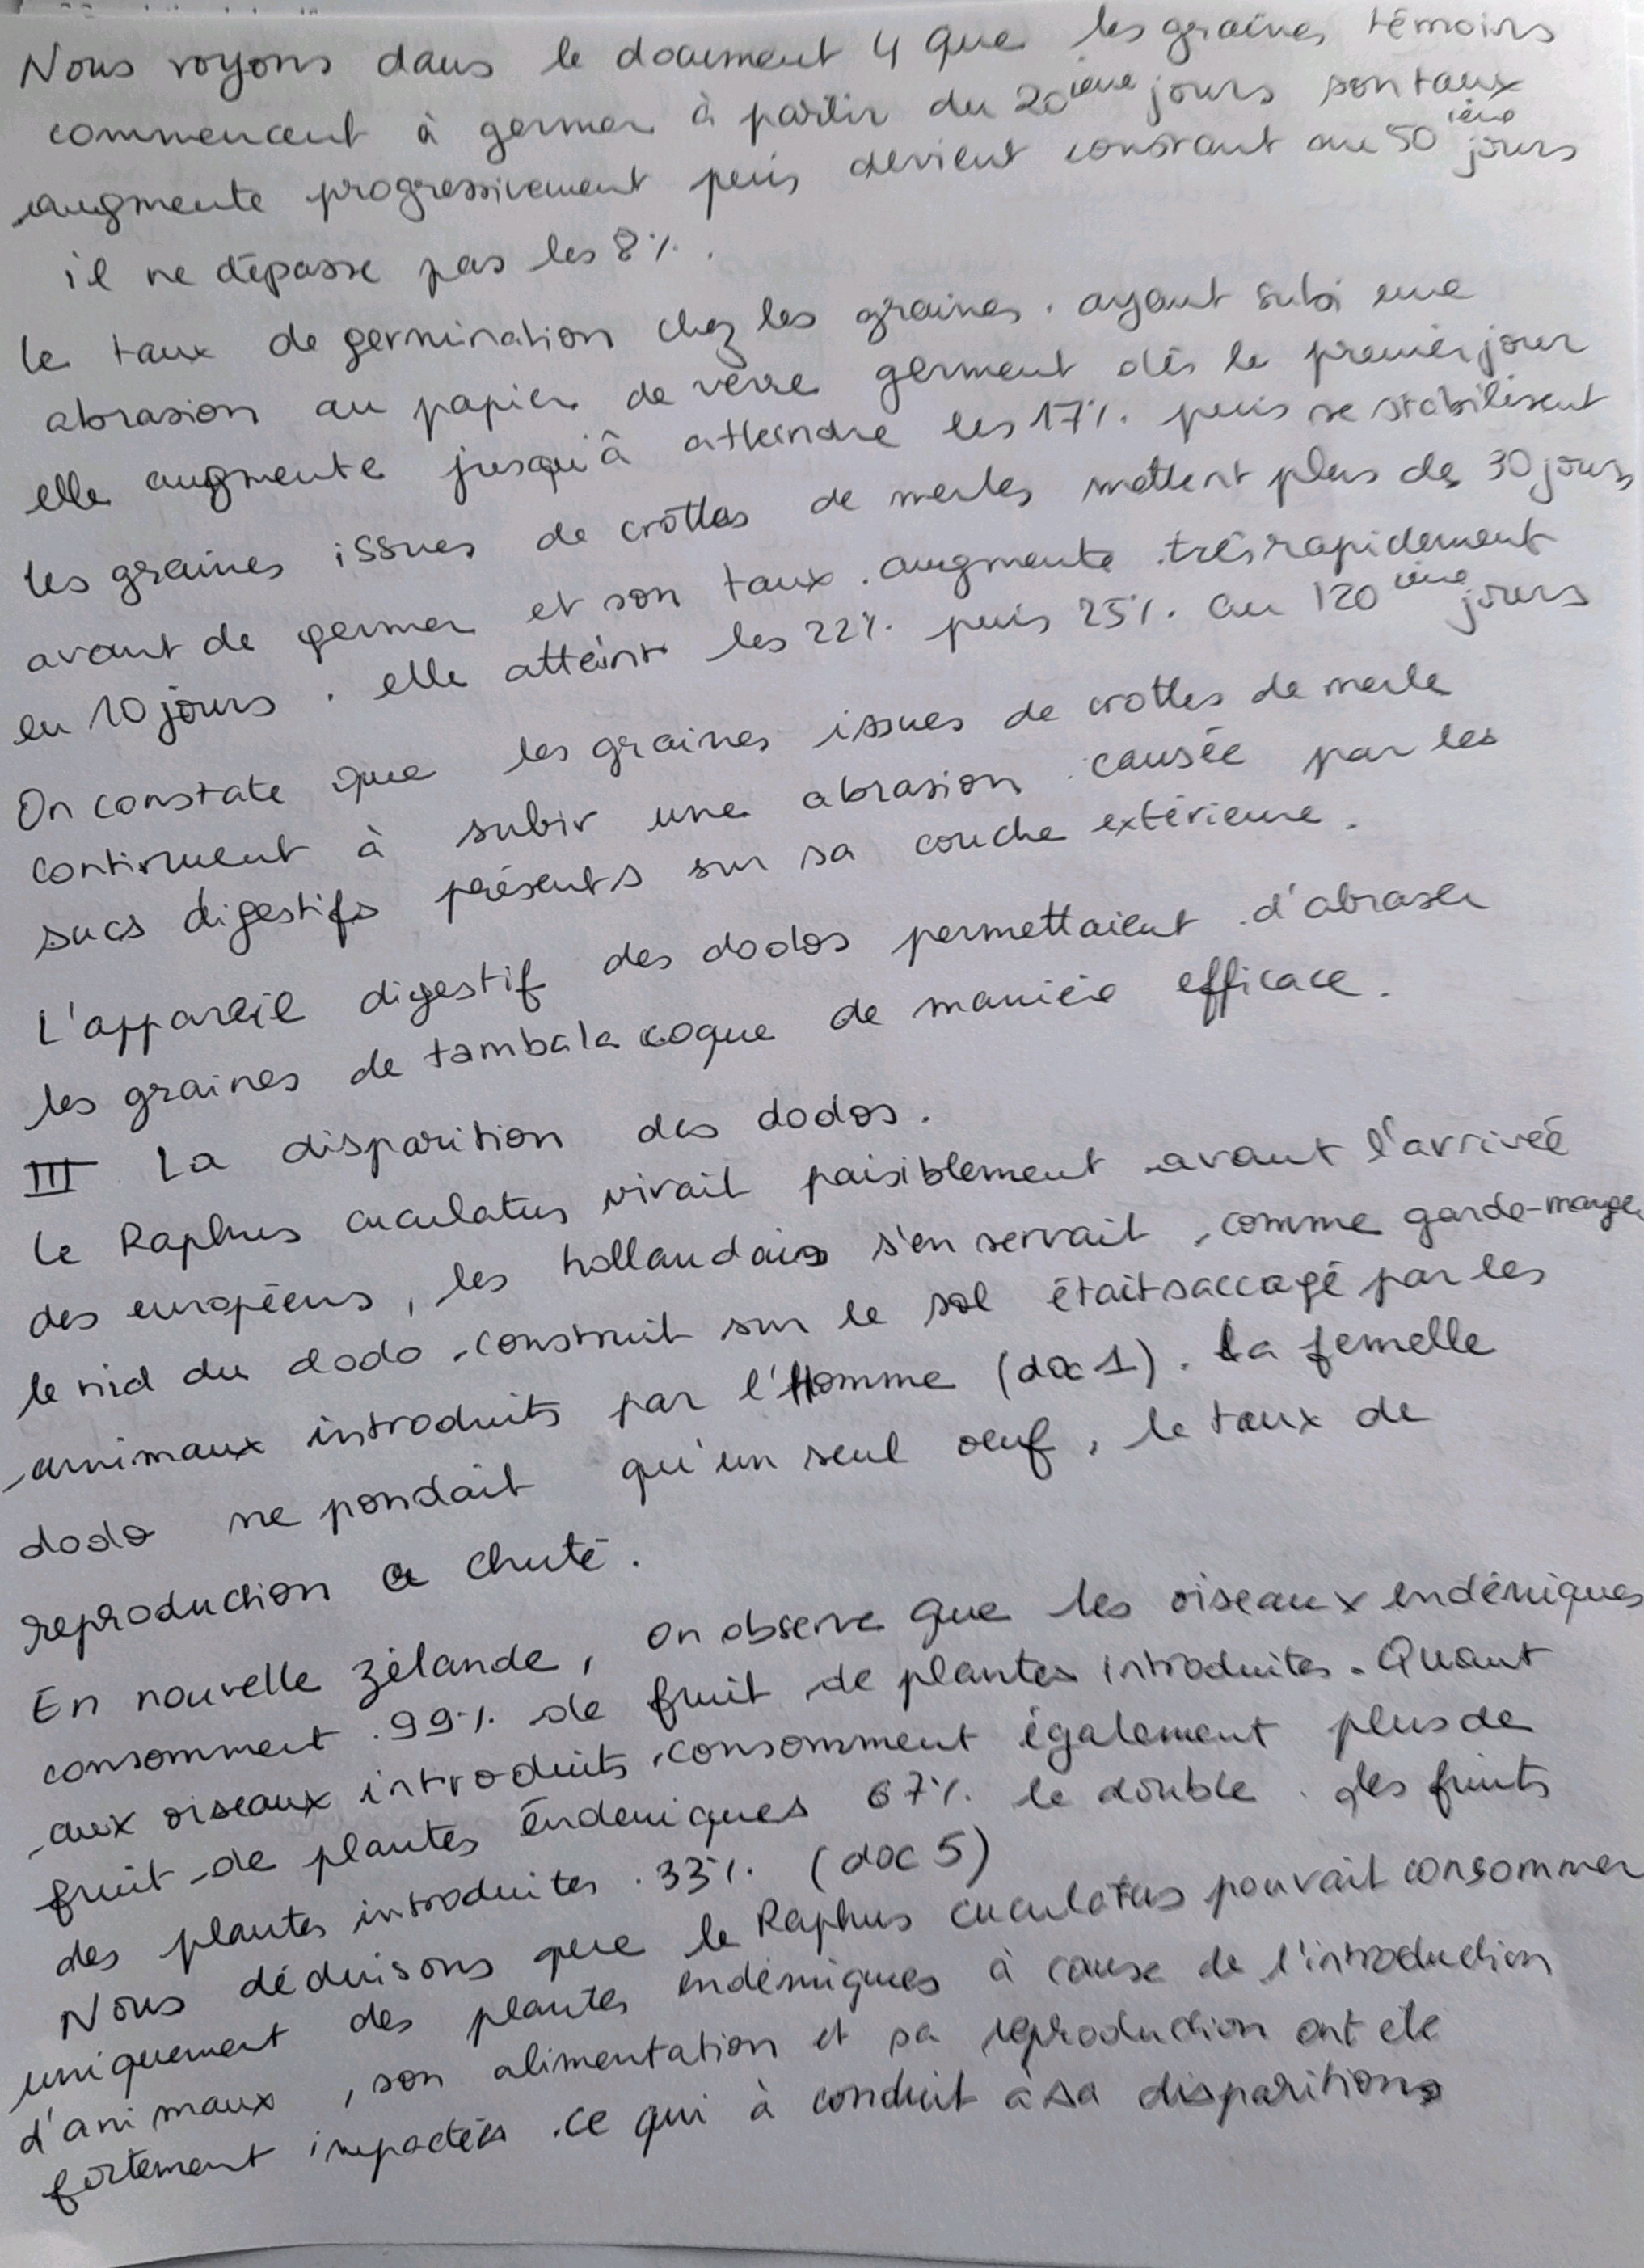 Nous voyons dans le document 4 que les graines témoins
commencent à germer à partir du 20ième jours son taux
augmente progressivement puis devient constant au 50ième jours
il ne dépasse pas les 8%.
le taux de germination chez les graines. ayant subi une
abrasion au papier de verre germent dès le premier jour
elle augmente jusqu'à atteindre les 17%. puis se stabilisent
les graines issues de crottes de merles mettent plus de 30 jours
avant de germer et son taux. augmente très rapidement
en 10 jours. elle atteint les 22%. puis 25%. au 120ième jours
On constate que les graines issues de crottes de merle
continuent à subir une abrasion causée par les
sucs digestifs présents sur sa couche extérieure.
L'appareil digestif des dodos permettaient d'abraser
les graines de tambalacoque de manière efficace.
III La disparition des dodos.
Le Raphus cuculatus vivait paisiblement avant l'arriveé
des européens, les hollandais s'en servait, comme garde-manger
le nid du dodo construit sur le sol était saccagé par les
animaux introduits par l'Homme (doc 1). La femelle
dodo ne pondait qu'un seul oeuf, le taux de
reproduction a chuté.
En nouvelle Zélande, on observe que les oiseaux endémiques
consomment 99%. de fruit de plantes introduites. Quant
aux oiseaux introduits, consomment également plus de
fruit de plantes éndemiques 67%. le double. des fruits
des plantes introduites. 33%. (doc 5)
Nous déduisons que le Raphus cuculatus pouvait consommer
uniquement des plantes endémiques à cause de l'introduction
d'animaux, son alimentation et sa reproduction ont été
fortement impactées. ce qui à conduit à sa disparition